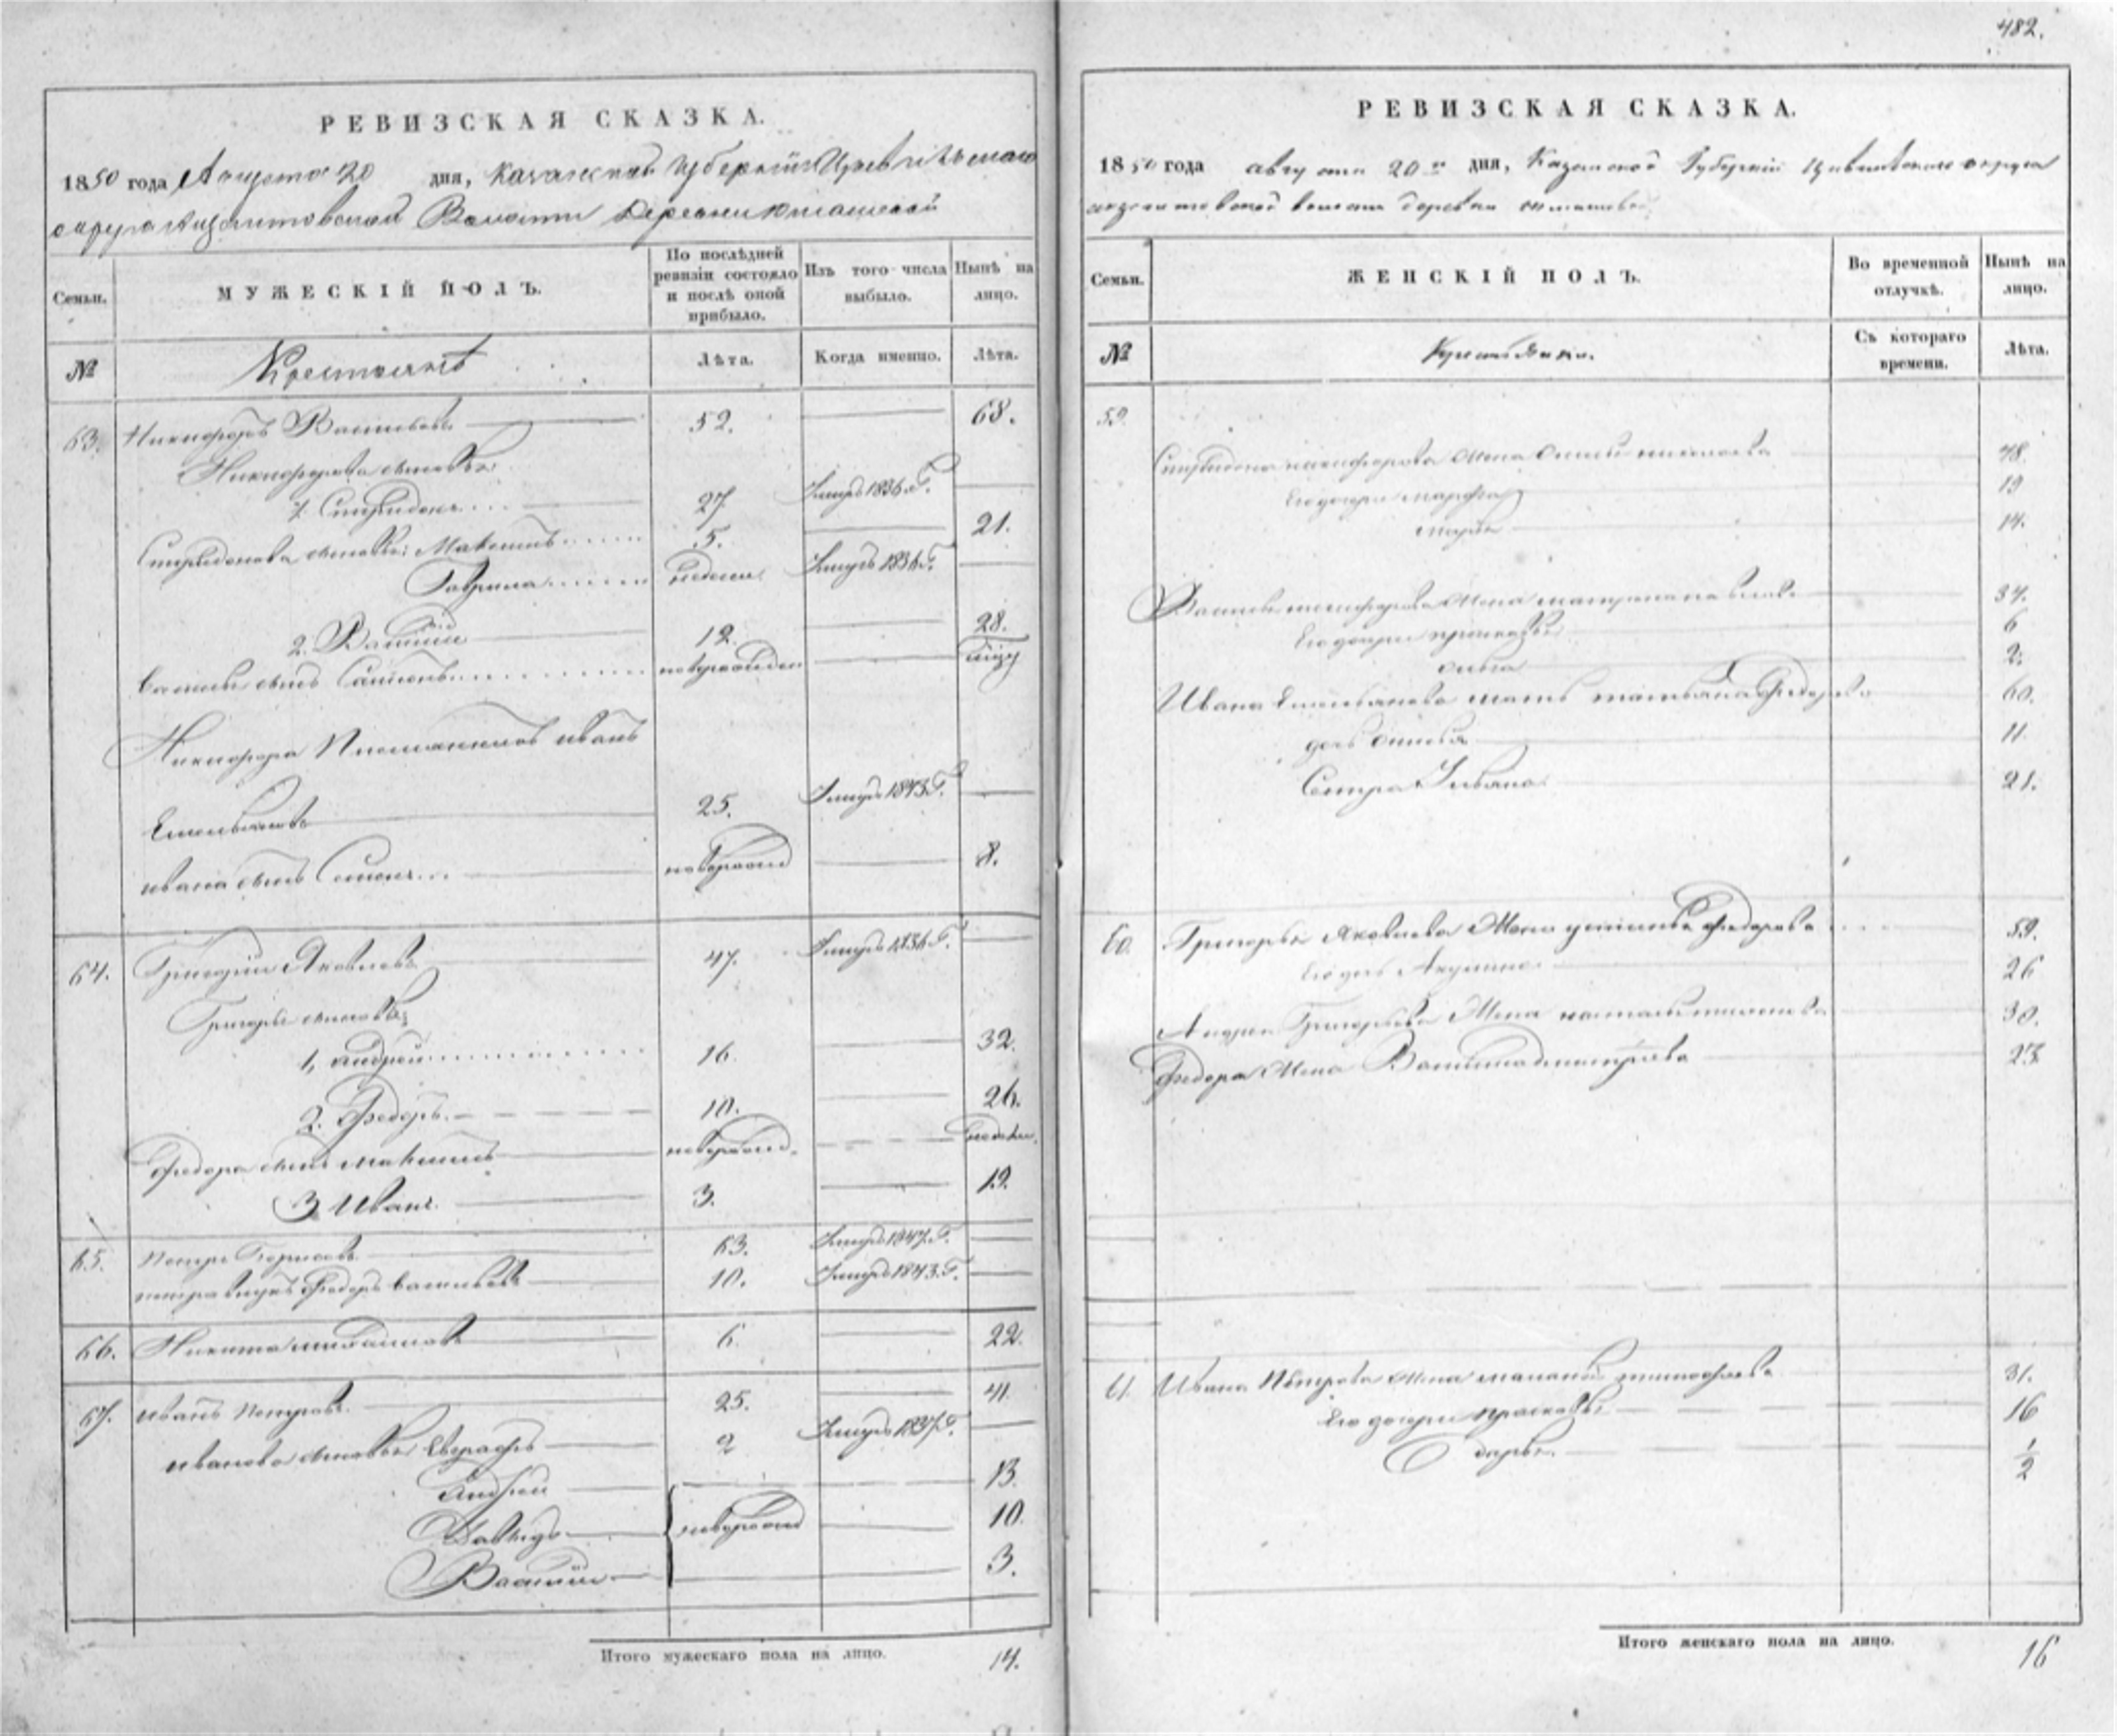 482.
РЕВИЗСКАЯ СКАЗКА.
1850 года Августа 20 дня, Казанской Губернии Цивильскаго
округа Волости Деревни
Семьи.
МУЖЕСКІЙ ПОЛЪ.
По послѣдней ревизіи состояло и послѣ оной прибыло.
Изъ того числа выбыло.
Нынѣ на лицо.
№
Крестьянъ
Лѣта.
Когда именно.
Лѣта.
63. Никифоръ Васильевъ 52. 68.
Никифорова сыновья
1. Спиридонъ 27. Умеръ 1836 Г.
Спиридонова сыновья: Максимъ 5. 21.
Гаврила недели Умеръ 1836 Г.
2. Василій 12. 28.
Василья сынъ новорожден
Никифора Племянникъ Иванъ
Емельяновъ 25. Умеръ 1843 Г.
Ивана сынъ Семенъ новорожд 8.
64. Григорій Яковлевъ 47. Умеръ 1836 Г.
Григорья сыновья
1, Андрей 16. 32.
2. Федоръ 10. 26.
Федора сынъ Максимъ новорожд. недели.
3 Иванъ 3. 19.
65. Петръ Борисовъ 63. Умеръ 1847 Г.
Петра внукъ Федоръ Васильевъ 10. Умеръ 1843 Г.
66. Никита 6. 22.
67. Иванъ Петровъ 25. 41.
Иванова сыновья Евграфъ 2 Умеръ 1837 Г.
Андрей 13.
Давыдъ новорожд 10.
Василій 3.
Итого мужескаго пола на лицо. 14.
РЕВИЗСКАЯ СКАЗКА.
1850 года августа 20 го дня, Казанской Губерніи Цивильскаго округа
волости деревни
Семьи.
ЖЕНСКІЙ ПОЛЪ.
Во временной отлучкѣ.
Нынѣ на лицо.
№
Съ котораго времени.
Лѣта.
59.
Спиридона Никифорова жена 48.
Его дочери Марфа 19
Марья 14.
Василья Никифорова жена 37.
Его дочери Прасковья 6
Ольга 2.
Ивана Емельянова мать Татьяна Федорова 60.
дочь 11.
Сестра Ульяна 21.
60. Григорья Яковлева Жена Устинья Федорова 59.
Его дочь Акулина 26
Андрея Григорьева Жена 30.
Федора Жена Василиса Дмитріева 23.
61. Ивана Петрова жена Тимофеева 31.
Его дочери Прасковья 16
Дарья 1/2
Итого женскаго пола на лицо. 16